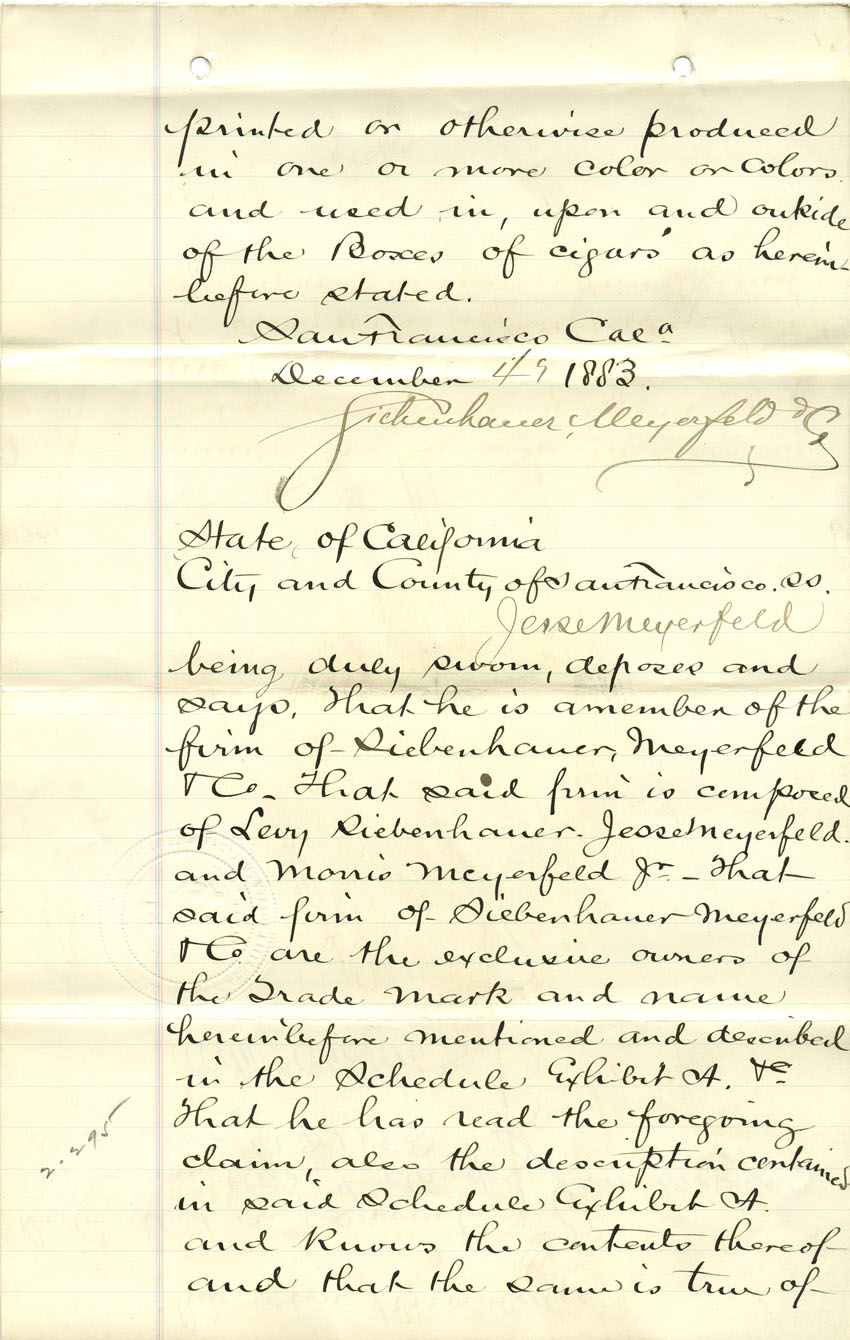 printed or otherwise produced
in one or more color or colors
and used in, upon and outside
of the Boxes of cigars as herein-
before stated.
San Francisco Cala
December 1883.
Siebenhauer, Meyerfeld & Co
State of California
City and County of San Francisco. ss.
Jesse Meyerfeld
being duly sworn, deposes and
says, That he is a member of the
firm of Siebenhauer, Meyerfeld
& Co_ That said firm is composed
of Levy Siebenhauer. Jesse Meyerfeld.
and Morris Meyerfeld Jr_ That
said firm of Siebenhauer Meyerfeld
& Co are the exclusive owners of
the Trade Mark and name
hereinbefore mentioned and described
in the Schedule Exhibit A. &c
That he has read the foregoing
claim, also the description contained
in said Schedule Exhibit A.
and knows the contents thereof
and that the same is true of
2.295